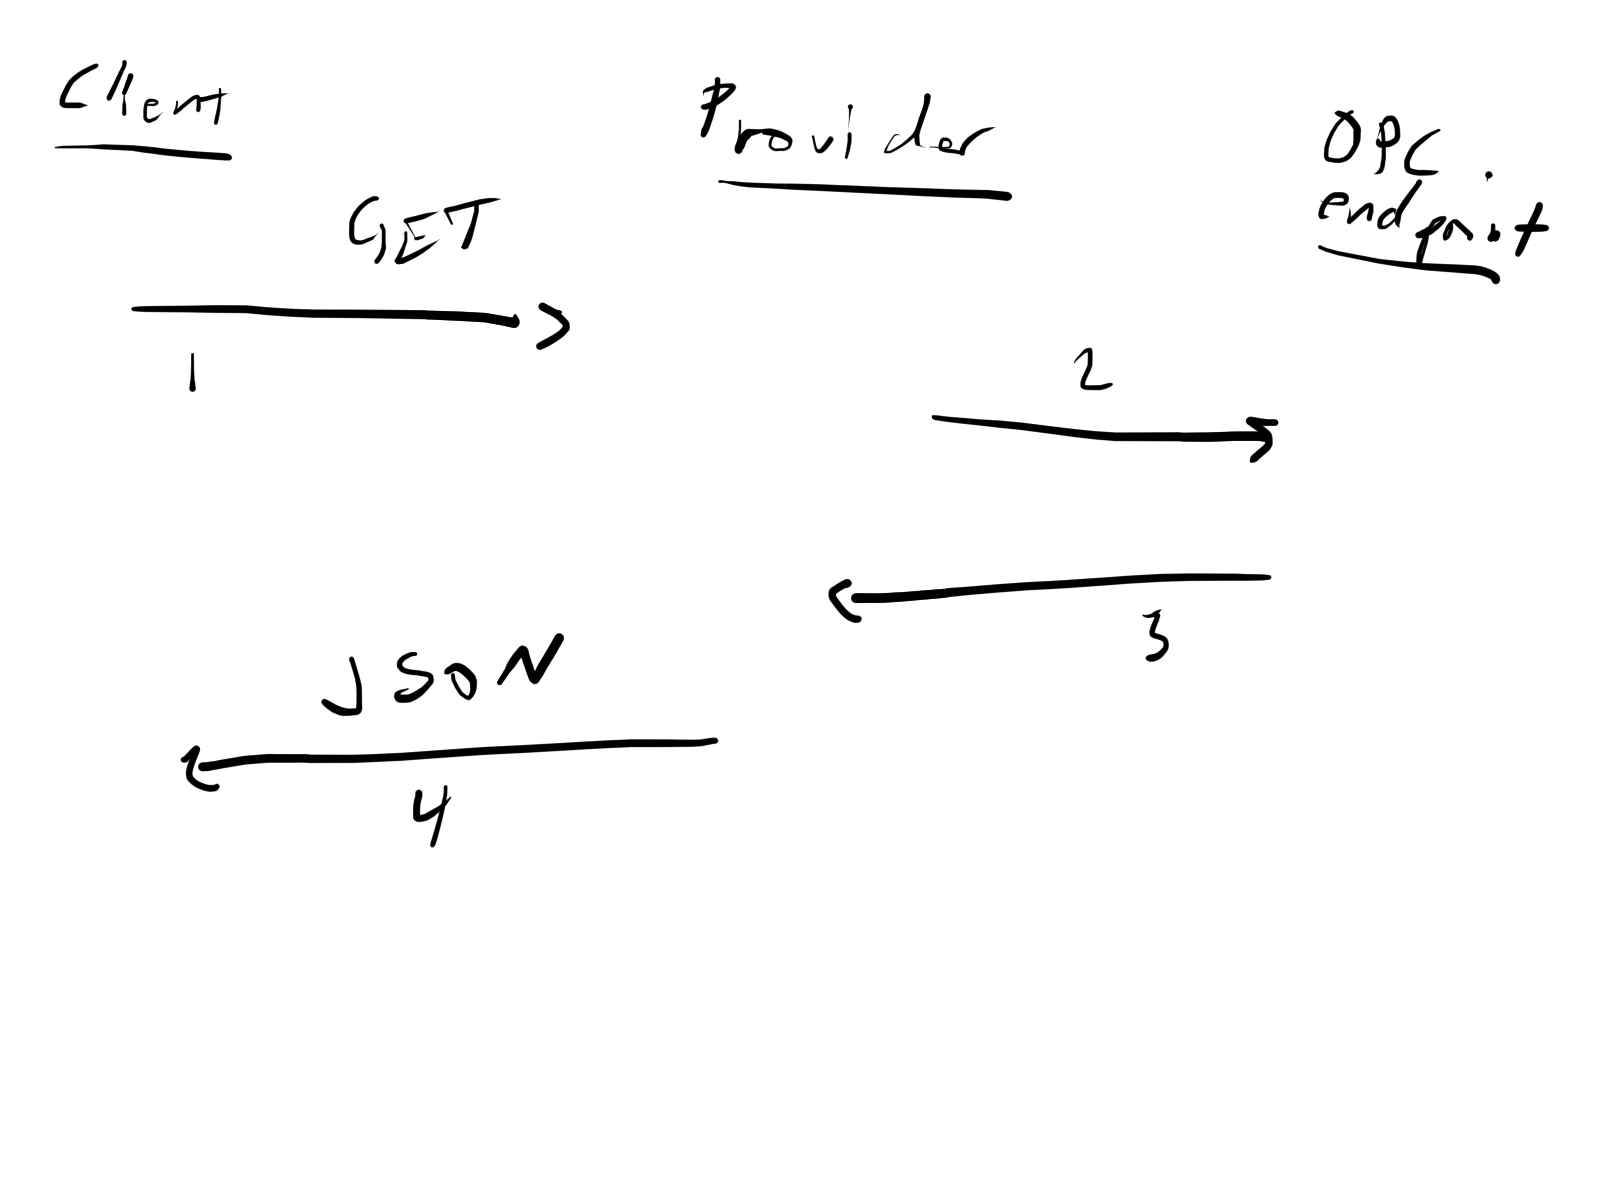 Client
Provider
OPC
endpoint
GET
1
2
3
JSON
4